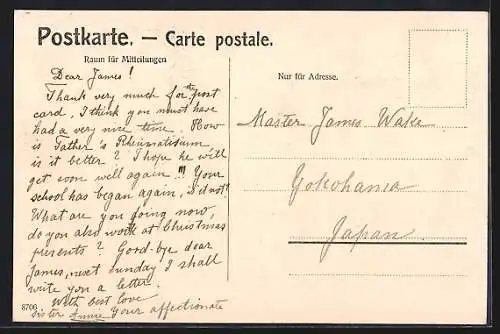 Postkarte. — Carte postale.
Raum für Mitteilungen
Nur für Adresse.
Dear James!
Thank very much for the post
card, I think you must have
had a very nice time. How
is Father's Rheumatisum
is it better? I hope he will
get soon well again!!! Your
school has began again, is it not?
What are you doing now,
do you also work at Christmas
presents? Good-bye dear
James, next sunday I shall
write you a letter.
With best love
sister Annie Your affectionate
8706
Master James Wake
Yokohama
Japan